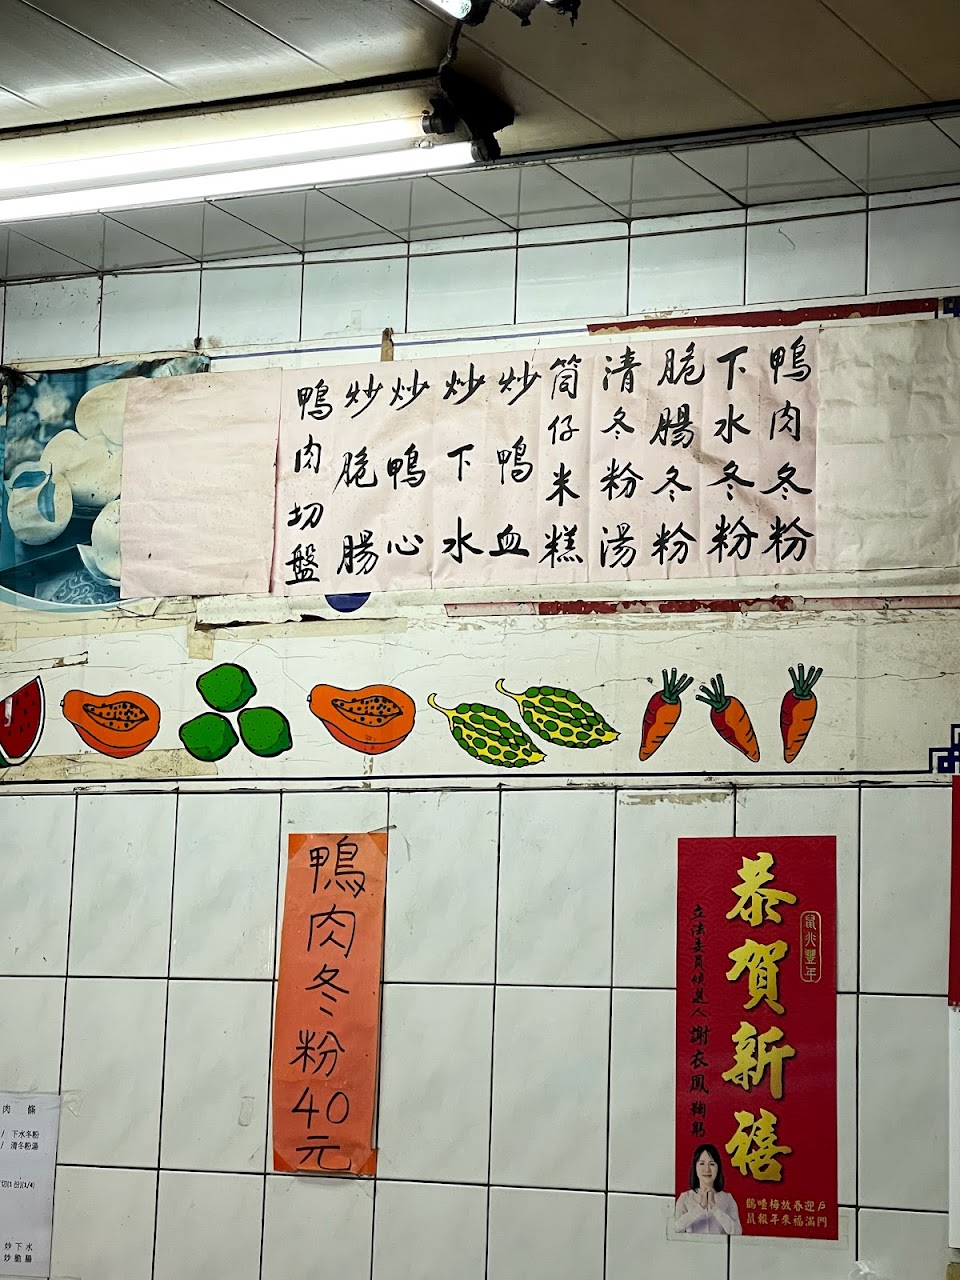 鴨肉冬粉
下水冬粉
脆腸冬粉
清冬粉湯
筒仔米糕
炒鴨血
炒下水
炒鴨心
炒脆腸
鴨肉切盤
鴨肉冬粉40元
恭賀新禧
鼠兆豐年
立法委員候選人 謝衣鳳 鞠躬
鵲噪梅放春迎戶
鼠報年來福滿門
肉 條
/ 下水冬粉
/ 清冬粉湯
切(1份)(1/4)
炒下水
炒脆腸